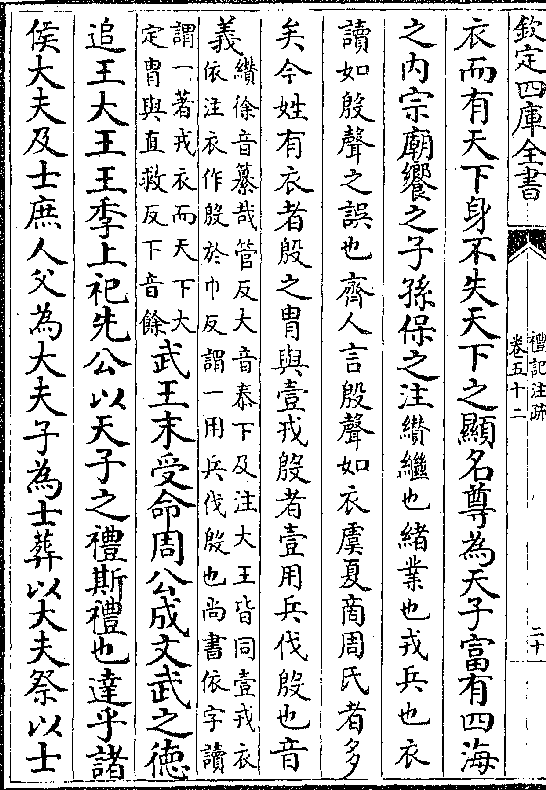 欽定四庫全書
禮記注疏
卷五十二
二十
衣而有天下身不失天下之顯名尊為天子富有四海
之内宗廟饗之子孫保之注纘繼也緒業也戎兵也衣
讀如殷聲之誤也齊人言殷聲如衣虞夏商周氏者多
矣今姓有衣者殷之胄與壹戎殷者壹用兵伐殷也音
義纘徐音纂哉管反大音泰下及注大王皆同壹戎衣
依注衣作殷於巾反謂一用兵伐殷也尚書依字讀
謂一著戎衣而天下大
定胄與直救反下音餘
武王末受命周公成文武之徳
追王大王王季上祀先公以天子之禮斯禮也達乎諸
侯大夫及士庶人父為大夫子為士葬以大夫祭以士